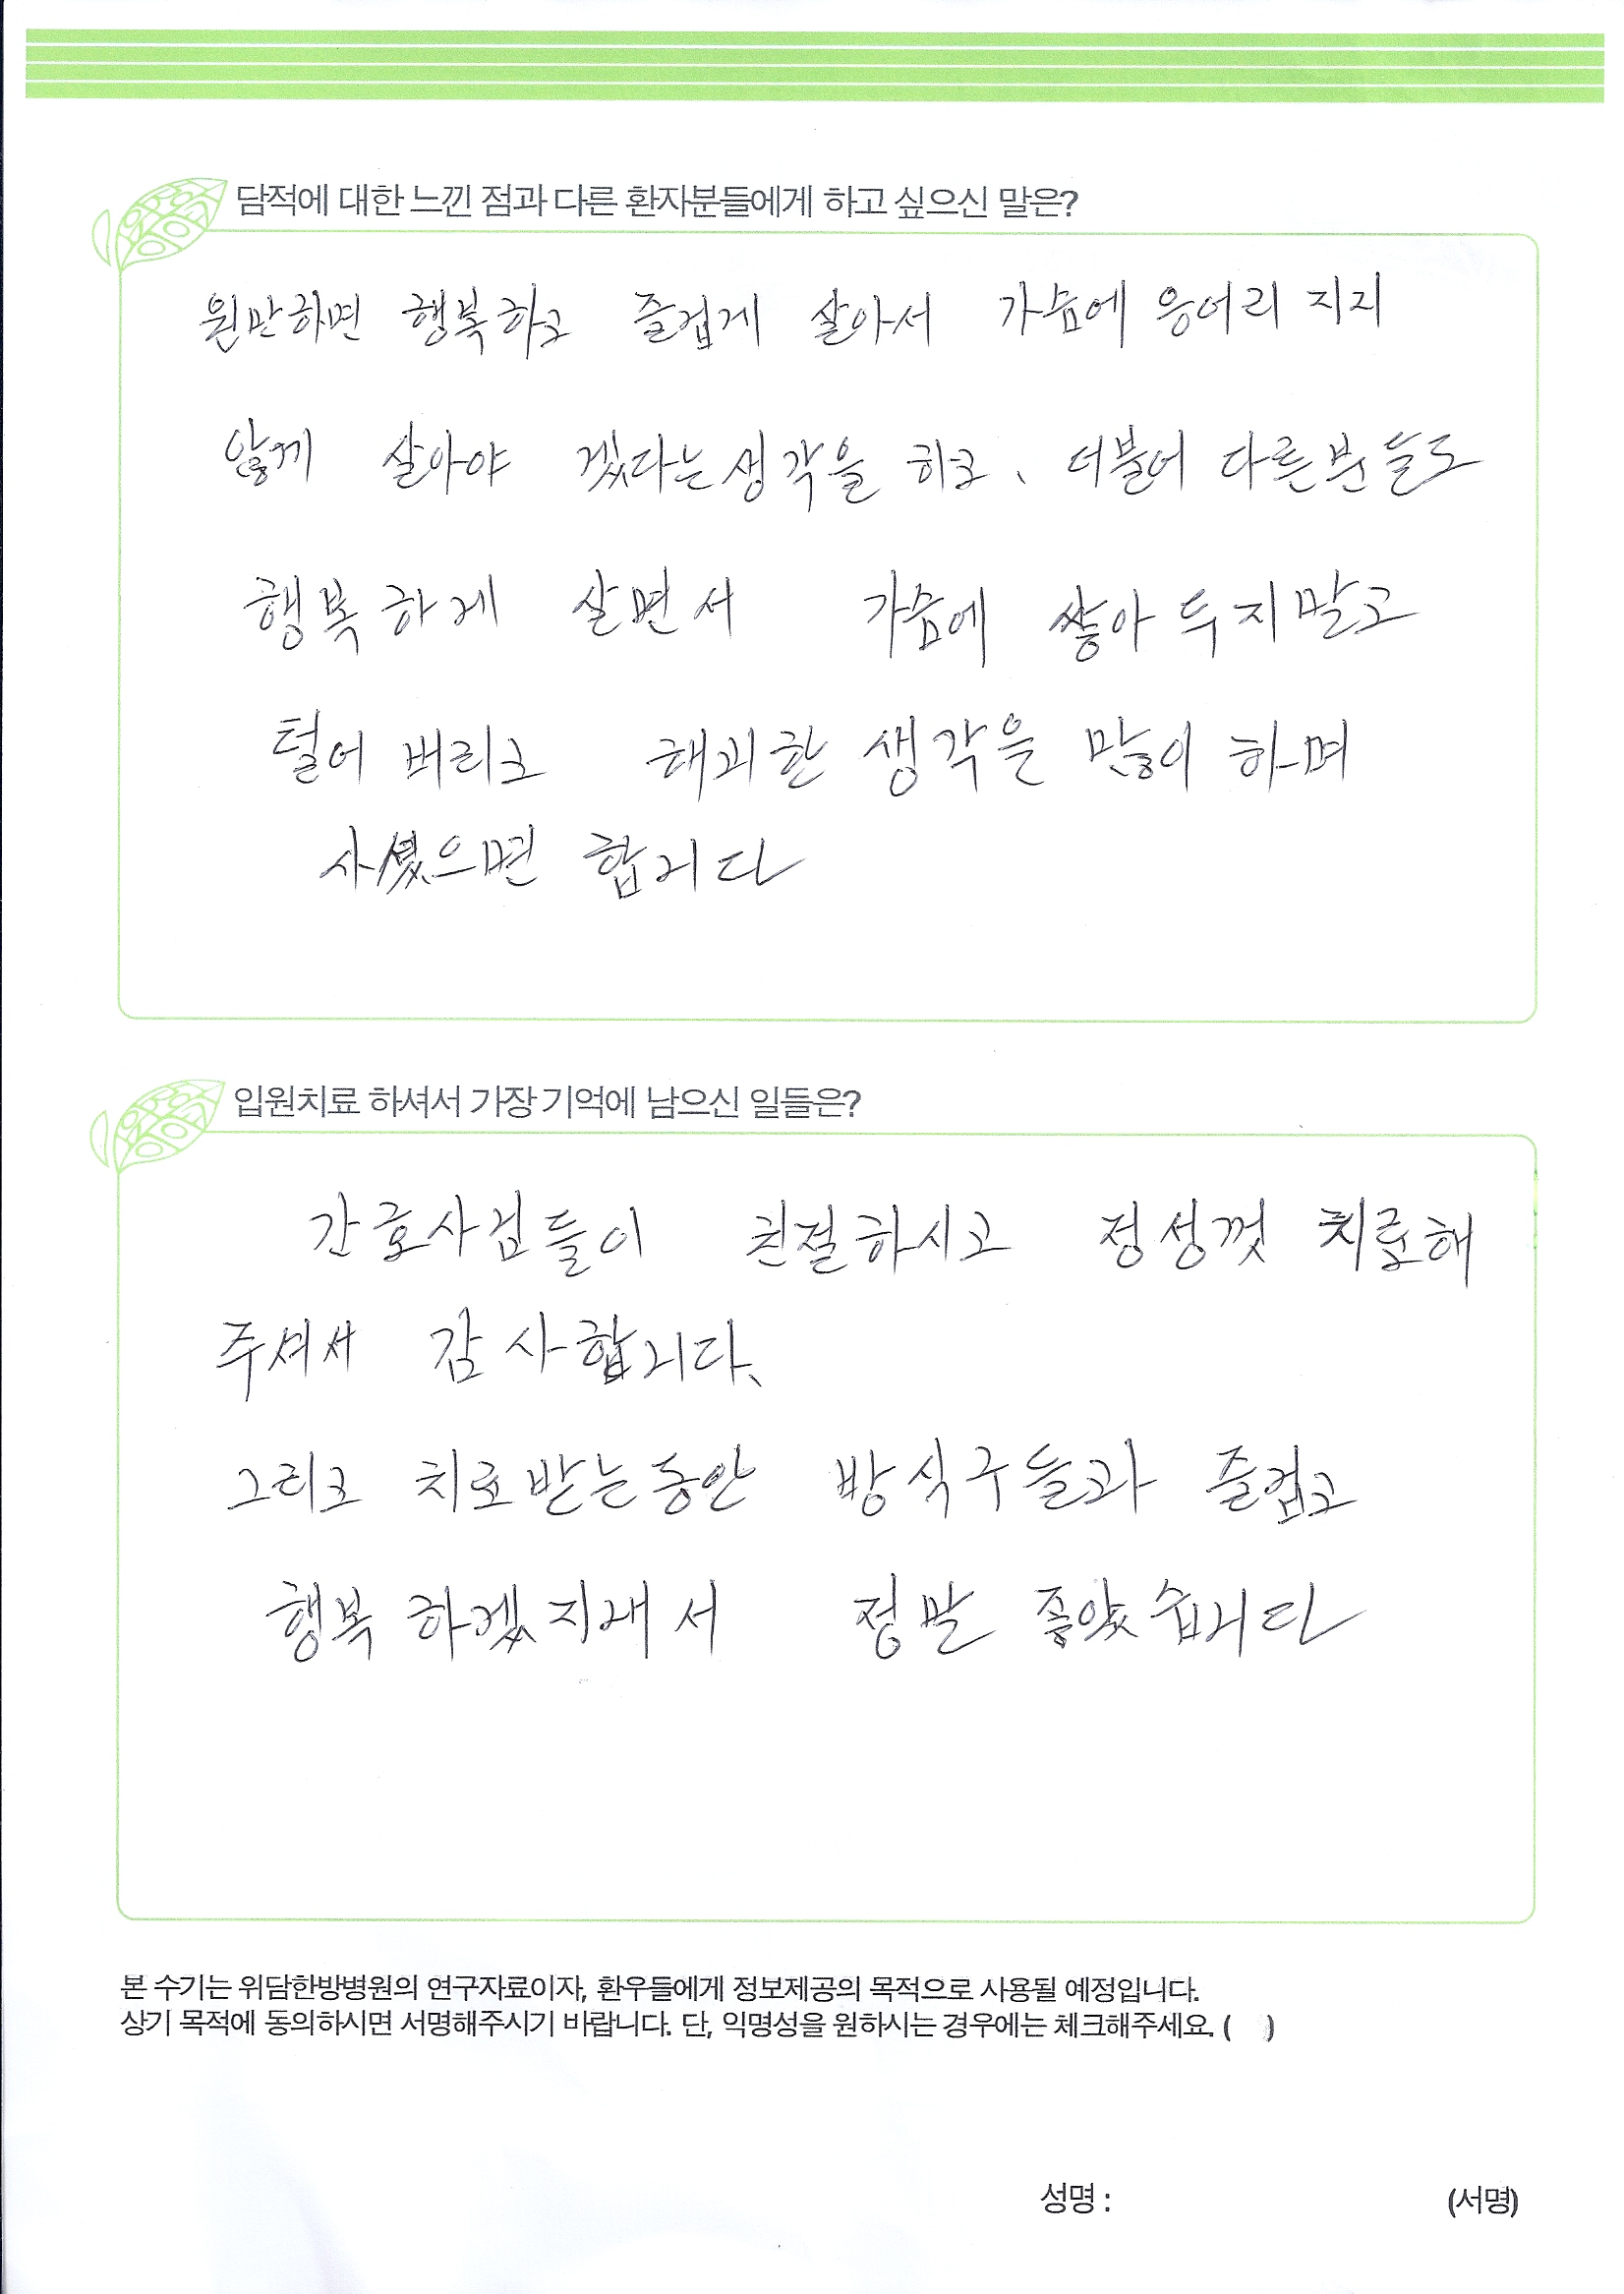 담적에 대한 느낀 점과 다른 환자분들에게 하고 싶으신 말은?
원만하면 행복하고 즐겁게 살아서 가슴에 응어리 지지
않게 살아야 겠다는 생각을 하고, 더불어 다른분들도
행복하게 살면서 가슴에 쌓아 두지말고
털어 버리고 해괴한 생각을 많이 하며
사셨으면 합니다
입원치료 하셔서 가장 기억에 남으신 일들은?
간호사님들이 친절하시고 정성껏 치료해
주셔서 감사합니다.
그리고 치료받는동안 방식구들과 즐겁고
행복하겠지내서 정말 좋았습니다
본 수기는 위담한방병원의 연구자료이자, 환우들에게 정보제공의 목적으로 사용될 예정입니다.
상기 목적에 동의하시면 서명해주시기 바랍니다. 단, 익명성을 원하시는 경우에는 체크해주세요. (   )
성명 : (서명)